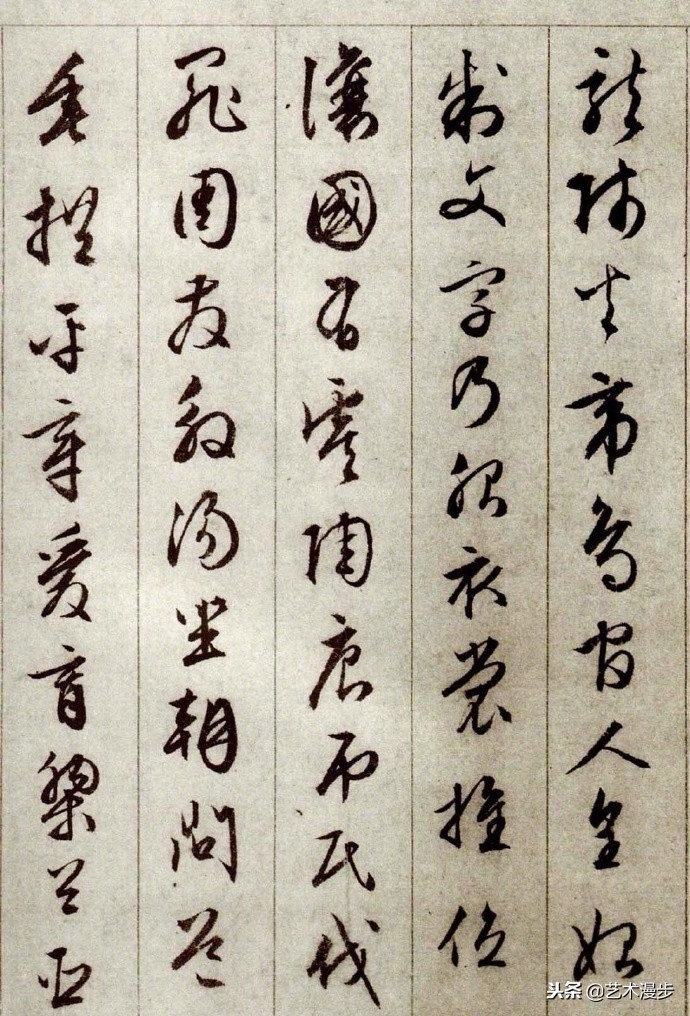 龍師火帝鳥官人皇始
制文字乃服衣裳推位
讓國有虞陶唐弔民伐
罪周發殷湯坐朝問道
垂拱平章愛育黎首臣
头条 @艺术漫步